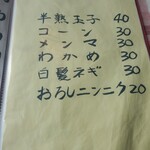 半熟玉子 40
コーン 30
メンマ 30
わかめ 30
白髪ネギ 30
おろしニンニク20